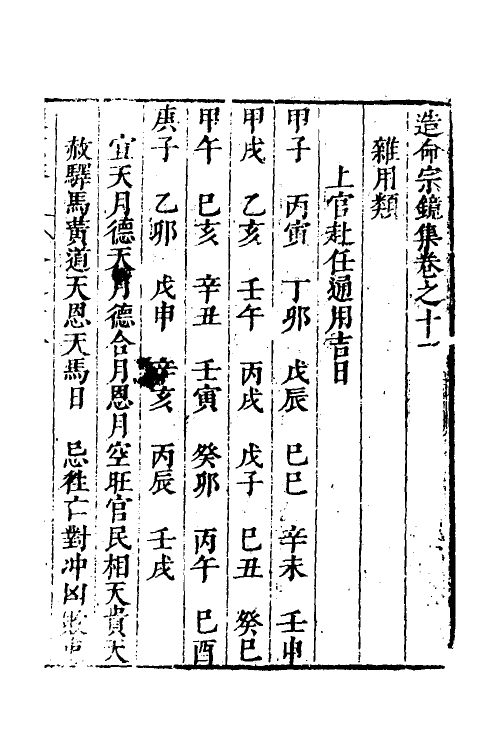 造命宗鏡集卷之十一
雜用類
上官赴任通用吉日
甲子 丙寅 丁卯 戊辰 己巳 辛未 壬申
甲戌 乙亥 壬午 丙戌 戊子 己丑 癸巳
甲午 己亥 辛丑 壬寅 癸卯 丙午 己酉
庚子 乙卯 戊申 辛亥 丙辰 壬戌
宜天月德天月德合月恩月空旺官民相天貴天
赦驛馬黃道天恩天馬日 忌徃亡對冲凶敗